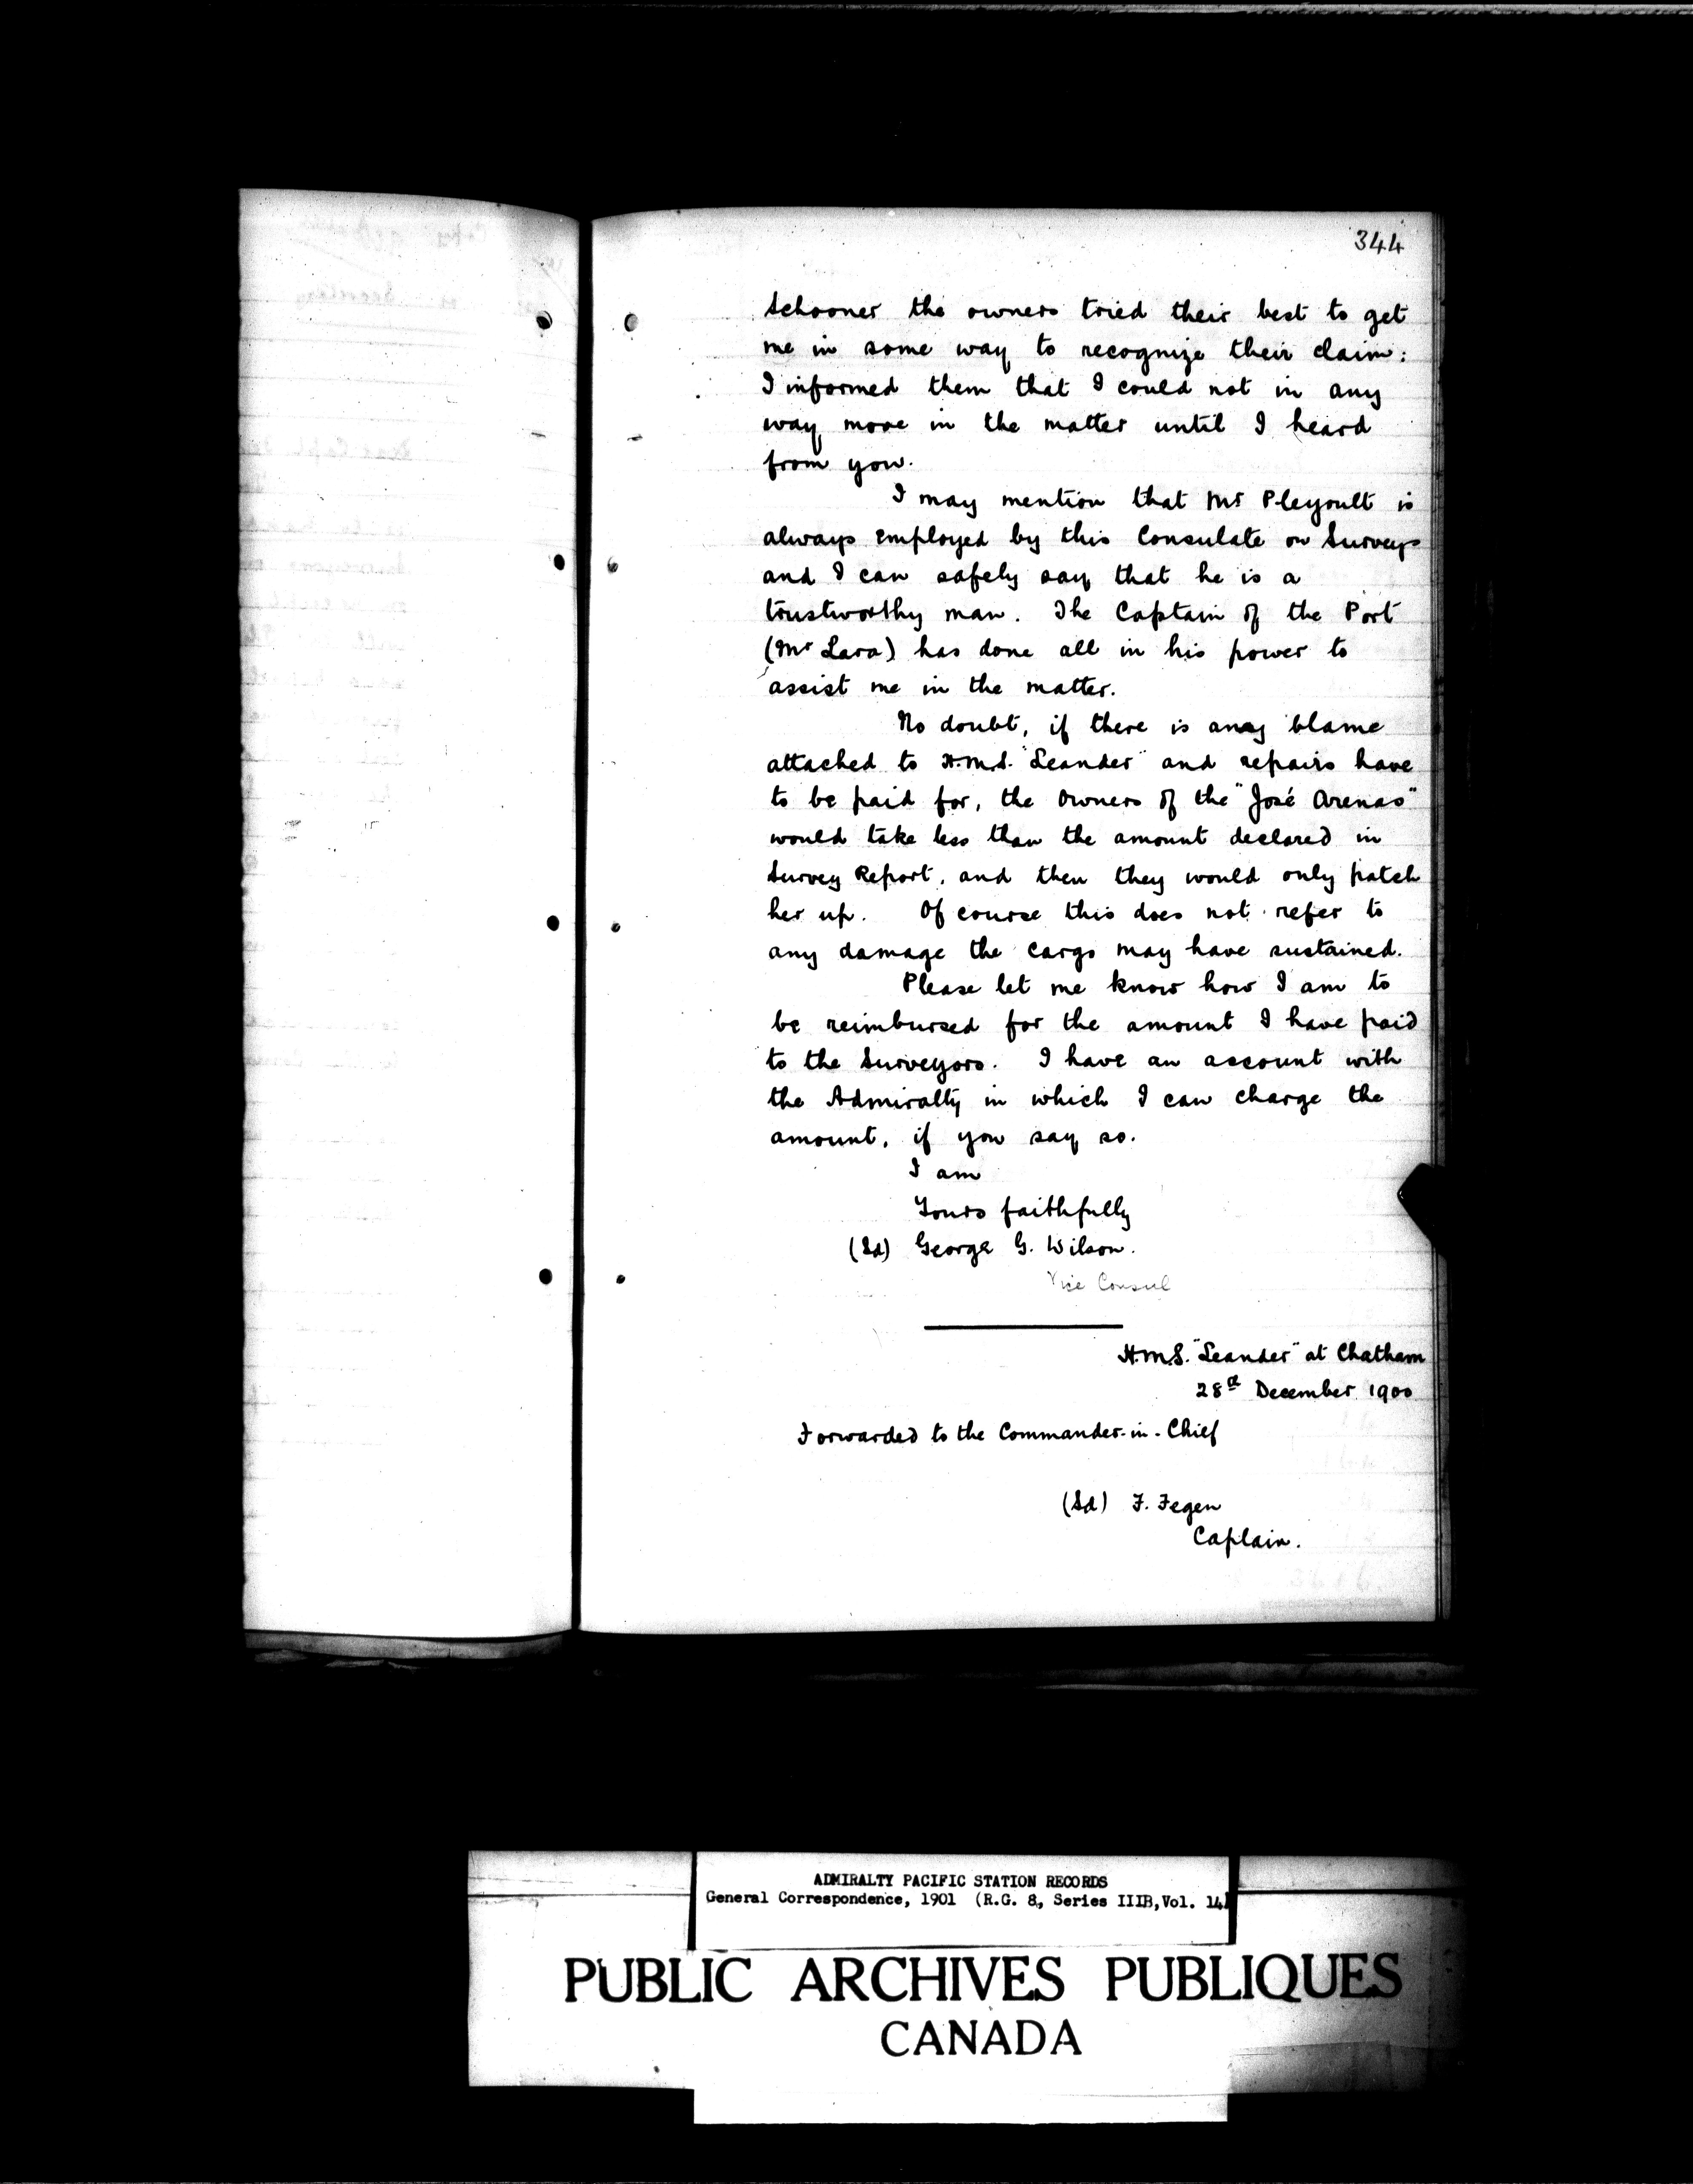 344
Schooner the owners tried their best to get
me in some way to recognize their claim:
I informed them that I could not in any
way move in the matter until I heard
from you.
I may mention that Mr Pleyoult is
always employed by this Consulate on Surveys
and I can safely say that he is a
trustworthy man. The Captain of the Port
(Mr Lara) has done all in his power to
assist me in the matter.
No doubt, if there is any blame
attached to H.M.S. "Leander" and repairs have
to be paid for, the owners of the "José Arenas"
would take less than the amount declared in
Survey Report, and then they would only patch
her up. Of course this does not refer to
any damage the cargo may have sustained.
Please let me know how I am to
be reimbursed for the amount I have paid
to the Surveyors. I have an account with
the Admiralty in which I can charge the
amount, if you say so.
I am
Yours faithfully
(Sd) George G. Wilson.
Vice Consul
H.M.S. "Leander" at Chatham
28th December 1900
Forwarded to the Commander-in-Chief
(Sd) F. Fegen
Captain.
ADMIRALTY PACIFIC STATION RECORDS
General Correspondence, 1901 (R.G. 8, Series IIIB, Vol. 14)
PUBLIC ARCHIVES PUBLIQUES
CANADA